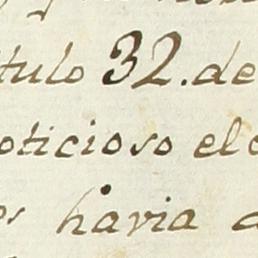 tulo 32. de
oticioso el
os havia a